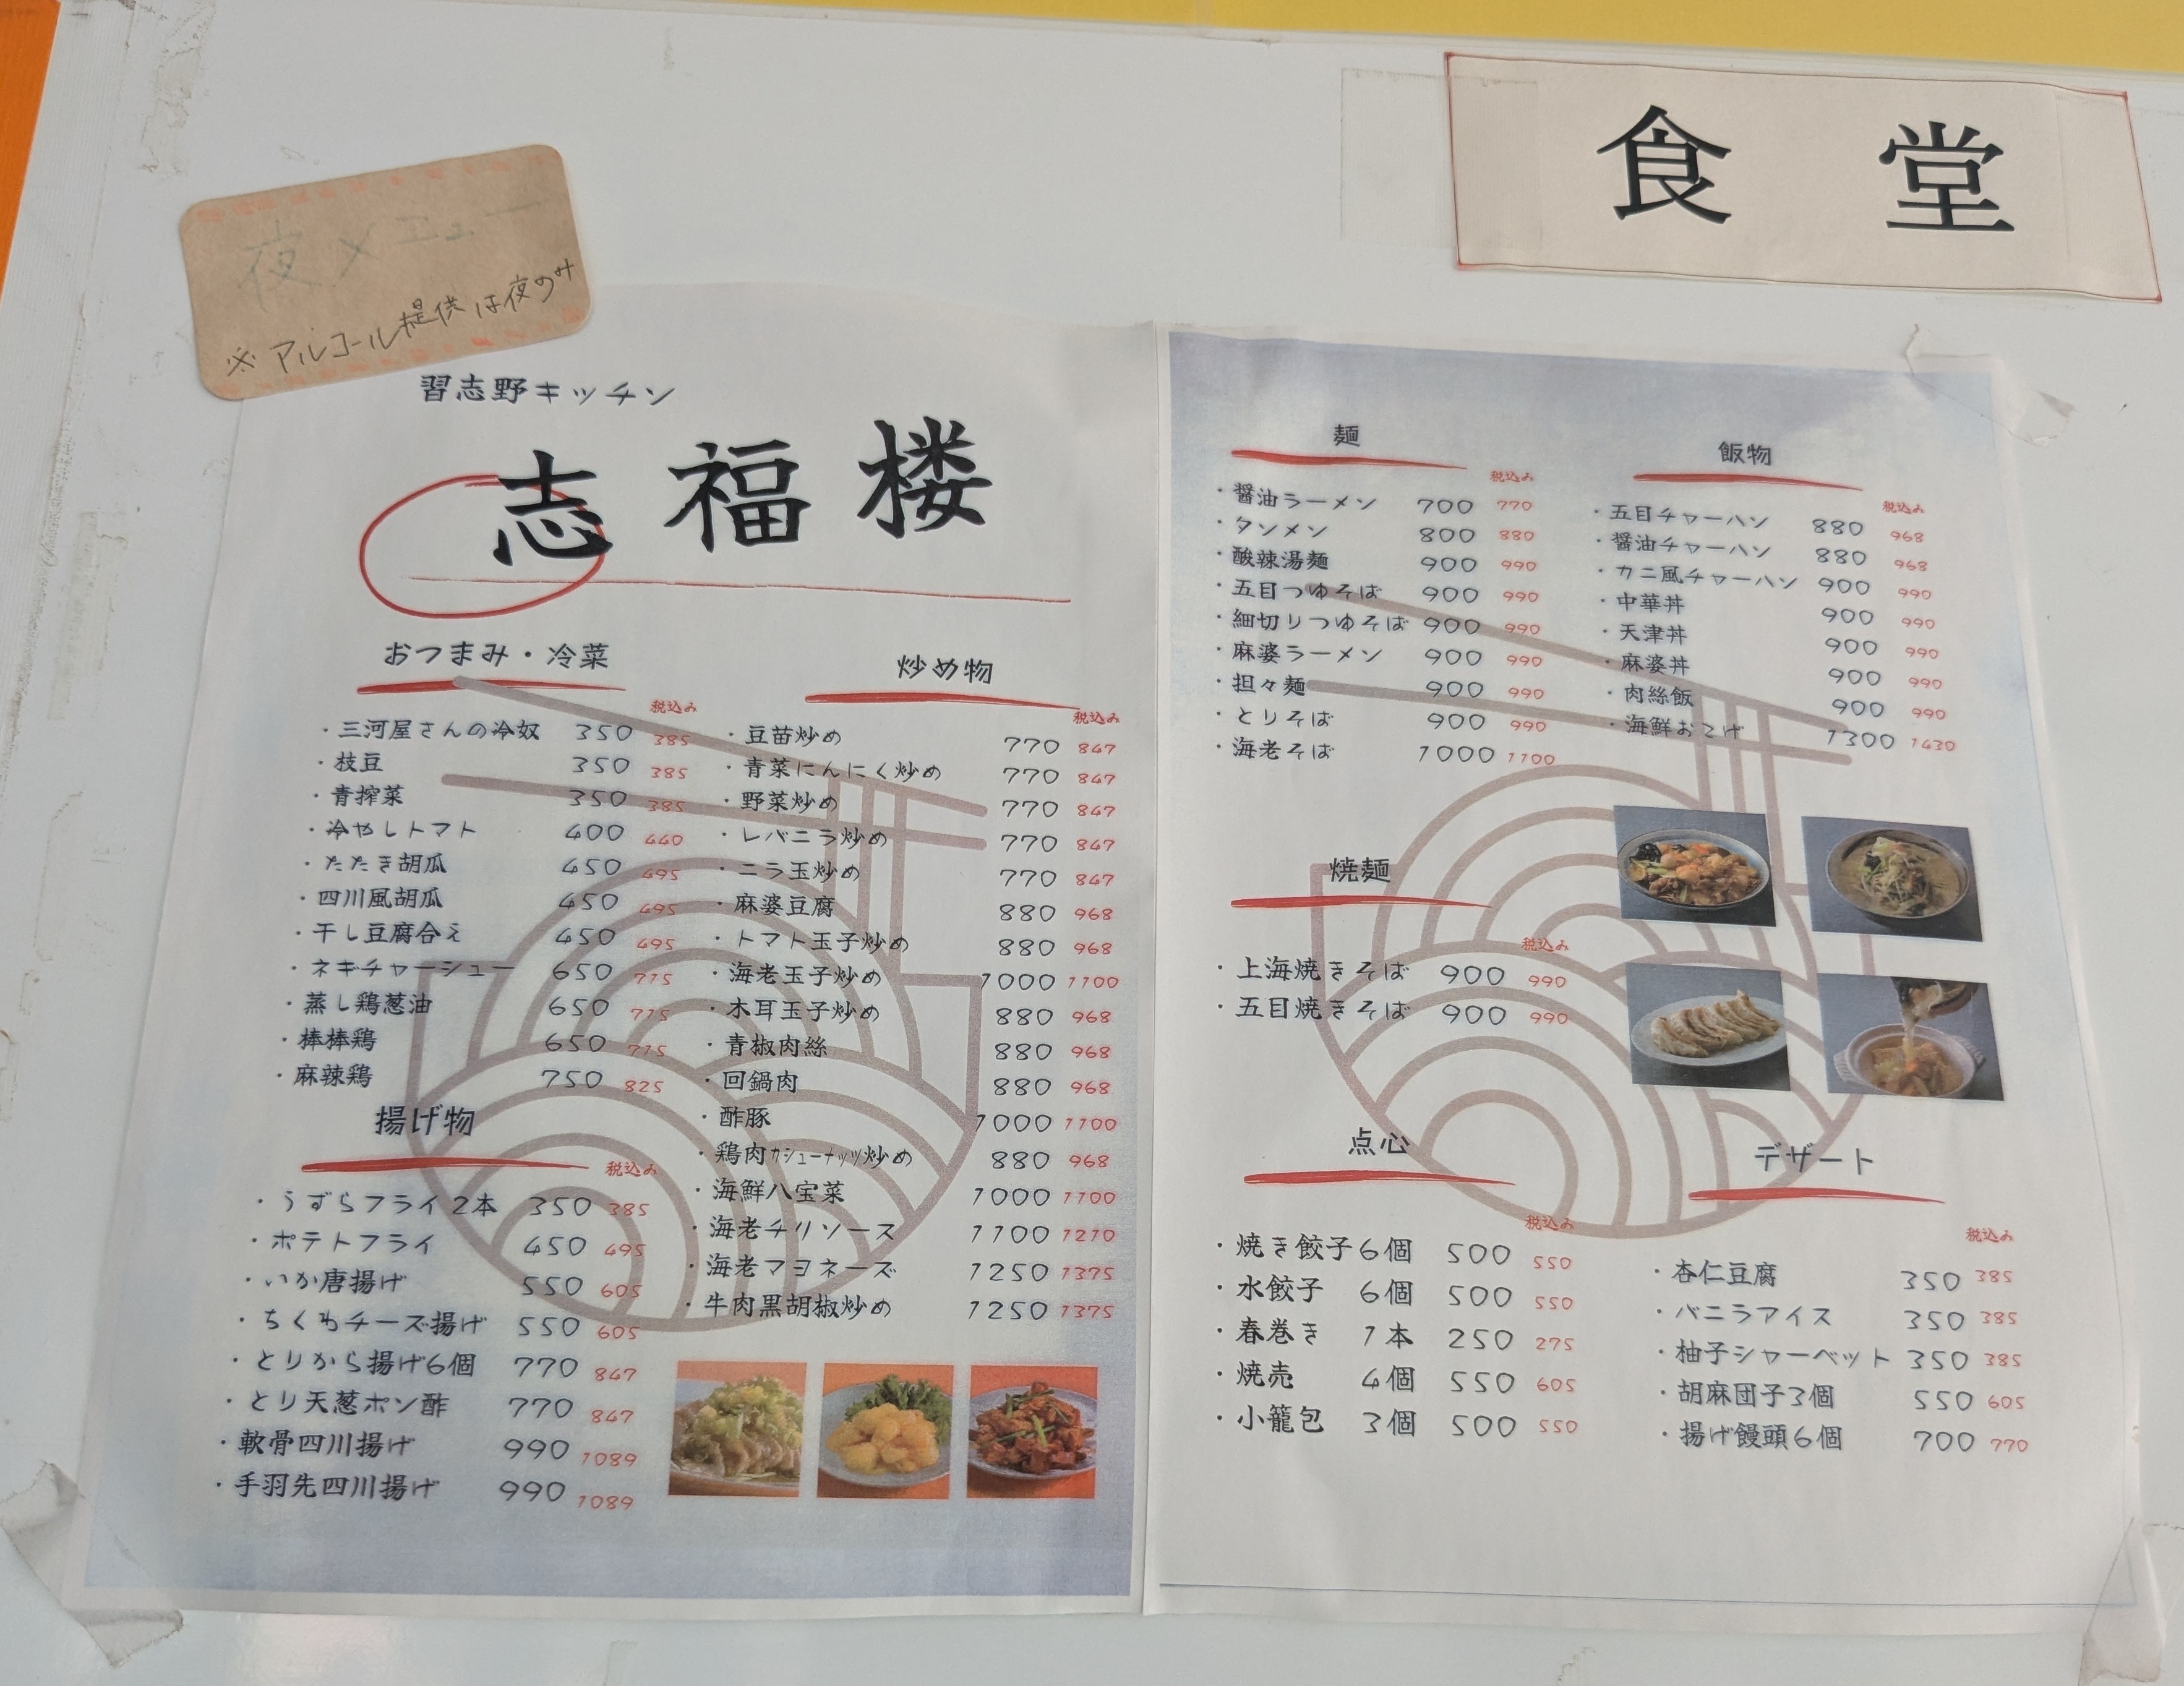 食堂
夜メニュー
※アルコール提供は夜のみ
習志野キッチン
志福楼
おつまみ・冷菜
税込み
・三河屋さんの冷奴 350 385
・枝豆 350 385
・青搾菜 350 385
・冷やしトマト 400 440
・たたき胡瓜 450 495
・四川風胡瓜 450 495
・干し豆腐合え 450 495
・ネギチャーシュー 650 715
・蒸し鶏葱油 650 715
・棒棒鶏 650 715
・麻辣鶏 750 825
揚げ物
税込み
・うずらフライ2本 350 385
・ポテトフライ 450 495
・いか唐揚げ 550 605
・ちくわチーズ揚げ 550 605
・とりから揚げ6個 770 847
・とり天葱ポン酢 770 847
・軟骨四川揚げ 990 1089
・手羽先四川揚げ 990 1089
炒め物
税込み
・豆苗炒め 770 847
・青菜にんにく炒め 770 847
・野菜炒め 770 847
・レバニラ炒め 770 847
・ニラ玉炒め 770 847
・麻婆豆腐 880 968
・トマト玉子炒め 880 968
・海老玉子炒め 1000 1100
・木耳玉子炒め 880 968
・青椒肉絲 880 968
・回鍋肉 880 968
・酢豚 1000 1100
・鶏肉カシューナッツ炒め 880 968
・海鮮八宝菜 1000 1100
・海老チリソース 1100 1210
・海老マヨネーズ 1250 1375
・牛肉黒胡椒炒め 1250 1375
麺
税込み
・醤油ラーメン 700 770
・タンメン 800 880
・酸辣湯麺 900 990
・五目つゆそば 900 990
・細切りつゆそば 900 990
・麻婆ラーメン 900 990
・担々麺 900 990
・とりそば 900 990
・海老そば 1000 1100
飯物
税込み
・五目チャーハン 880 968
・醤油チャーハン 880 968
・カニ風チャーハン 900 990
・中華丼 900 990
・天津丼 900 990
・麻婆丼 900 990
・肉絲飯 900 990
・海鮮おこげ 1300 1430
焼麺
税込み
・上海焼きそば 900 990
・五目焼きそば 900 990
点心
税込み
・焼き餃子6個 500 550
・水餃子 6個 500 550
・春巻き 1本 250 275
・焼売 4個 550 605
・小籠包 3個 500 550
デザート
税込み
・杏仁豆腐 350 385
・バニラアイス 350 385
・柚子シャーベット 350 385
・胡麻団子3個 550 605
・揚げ饅頭6個 700 770